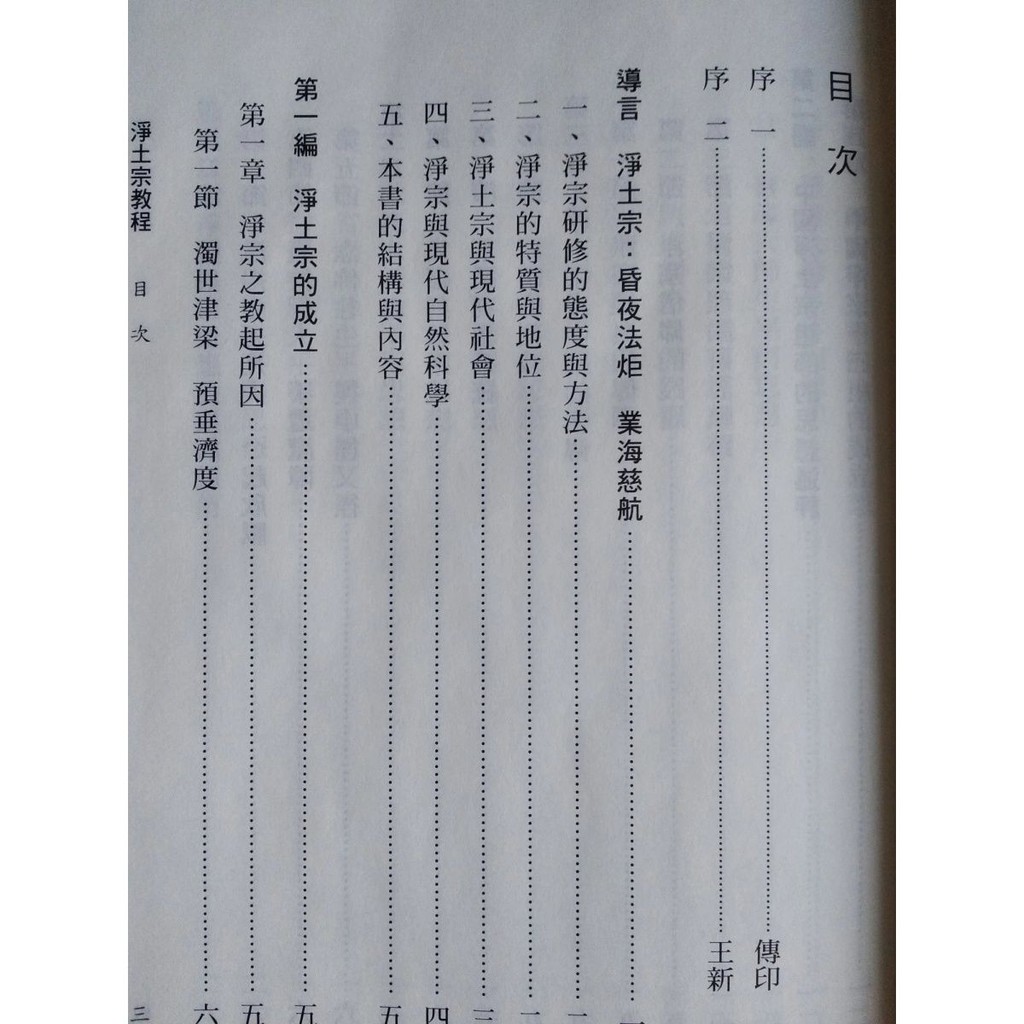 目次
序一……傳印
序二……王新
導言 淨土宗：昏夜法炬 業海慈航……一
一、淨宗研修的態度與方法……一
二、淨宗的特質與地位……二
三、淨土宗與現代社會……三
四、淨宗與現代自然科學……四
五、本書的結構與內容……五
第一編 淨土宗的成立……五
第一章 淨宗之教起所因……五
第一節 濁世津梁 預垂濟度……六
淨土宗教程 目次 三